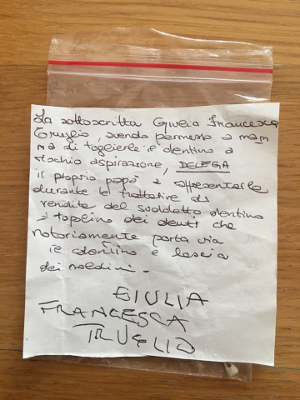 La sottoscritta Giulia Francesca
Truglio, avendo permesso a mam
ma di toglierle il dentino a
rischio aspirazione, DELEGA
il proprio papà a rappresentarla
durante le trattative di
vendita del suddetto dentino
a topolino dei denti che
notoriamente porta via
il dentino e lascia
dei soldini.
GIULIA
FRANCESCA
TRUGLIO